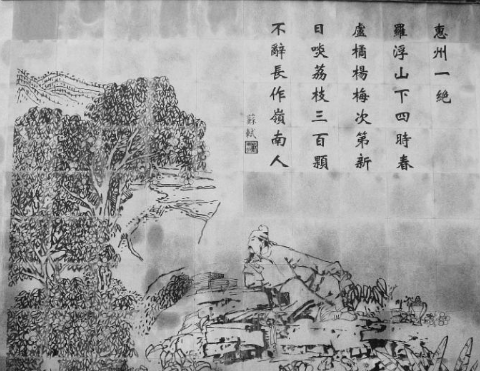 惠州一絕
羅浮山下四時春
盧橘楊梅次第新
日啖荔枝三百顆
不辭長作嶺南人
蘇軾